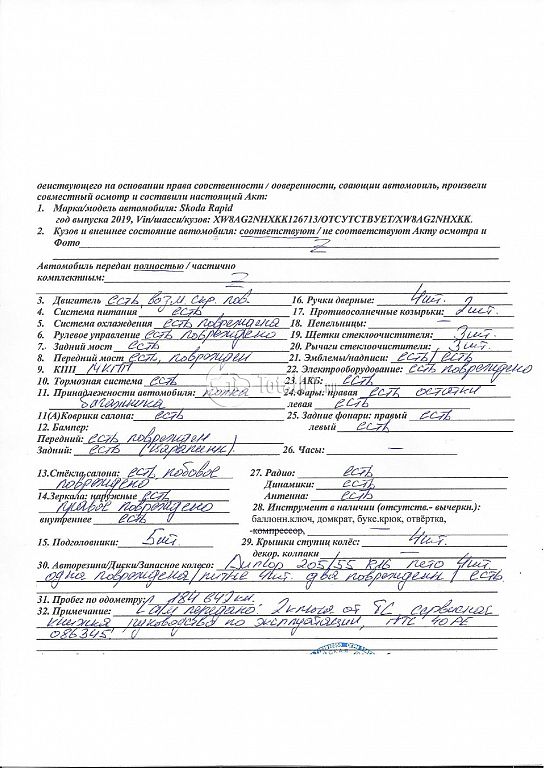 действующего на основании права собственности / доверенности, сдающий автомобиль, произвели
совместный осмотр и составили настоящий Акт:
1. Марка/модель автомобиля: Skoda Rapid
год выпуска 2019, Vin/шасси/кузов: XW8AG2NHXKK126713/ОТСУТСТВУЕТ/XW8AG2NHXKK.
2. Кузов и внешнее состояние автомобиля: соответствуют / не соответствуют Акту осмотра и
Фото
Автомобиль передан полностью / частично
комплектным:
3. Двигатель есть возм. скр. пов. 16. Ручки дверные: 4шт.
4. Система питания есть 17. Противосолнечные козырьки: 2шт.
5. Система охлаждения есть повреждена 18. Пепельницы: —
6. Рулевое управление есть повреждено 19. Щетки стеклоочистителя: 3шт.
7. Задний мост есть 20. Рычаги стеклоочистителя: 3шт.
8. Передний мост есть, поврежден 21. Эмблемы/надписи: есть / есть
9. КПП МКПП 22. Электрооборудование: есть повреждено
10. Тормозная система есть 23. АКБ: есть
11. Принадлежности автомобиля: полка 24.Фары: правая есть остатки
багажника левая есть
11(А)Коврики салона: есть 25. Задние фонари: правый есть
12. Бампер: левый есть
Передний: есть поврежден
Задний: есть (царапины) 26. Часы: —
13.Стёкла салона: есть лобовое 27. Радио: есть
повреждено Динамики: есть
14.Зеркала: наружные есть Антенна: есть
правое повреждено 28. Инструмент в наличии (отсутств.- вычеркн.):
внутреннее есть баллонн.ключ, домкрат, букс.крюк, отвёртка,
компрессор,
15. Подголовники: 5шт. 29. Крышки ступиц колёс: 4шт.
декор. колпаки —
30. Авторезина/Диски/Запасное колесо: 205/55 R16 лето 4шт.
одна повреждена / литые 4шт. два повреждены / есть
31. Пробег по одометру: 184 842 км.
32. Примечание: С а/м передано: 2 ключа от ТС, сервисная
книжка, руководство по эксплуатации, ПТС 40РЕ
086345